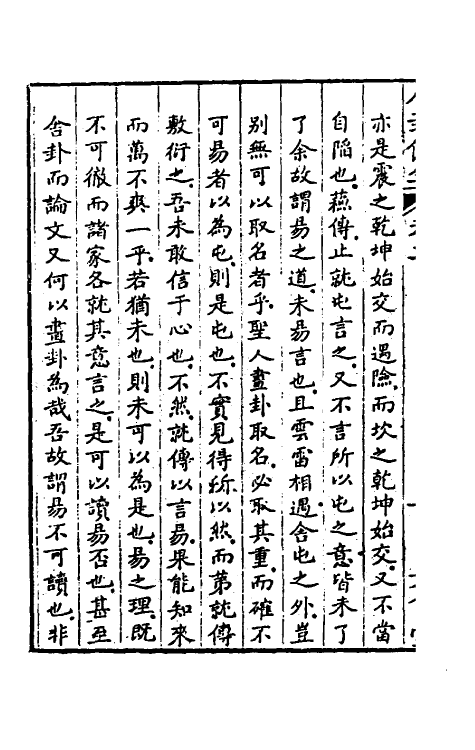 亦是震之乾坤始交而遇險而坎之乾坤始交又不當
自陷也蘓傳止就屯言之又不言所以屯之意皆未了
了余故謂易之道未易言也且雲雷相遇舍屯之外豈
别無可以取名者乎聖人畫卦取名必取其重而確不
可易者以為屯則是屯也不實見得所以然而第就傳
敷衍之吾未敢信于心也不然就傳以言易果能知來
而萬不爽一乎若猶未也則未可以為是也易之理既
不可徹而諸家各就其意言之是可以讀易否也甚至
舍卦而論文又何以畫卦為哉吾故謂易不可讀也非